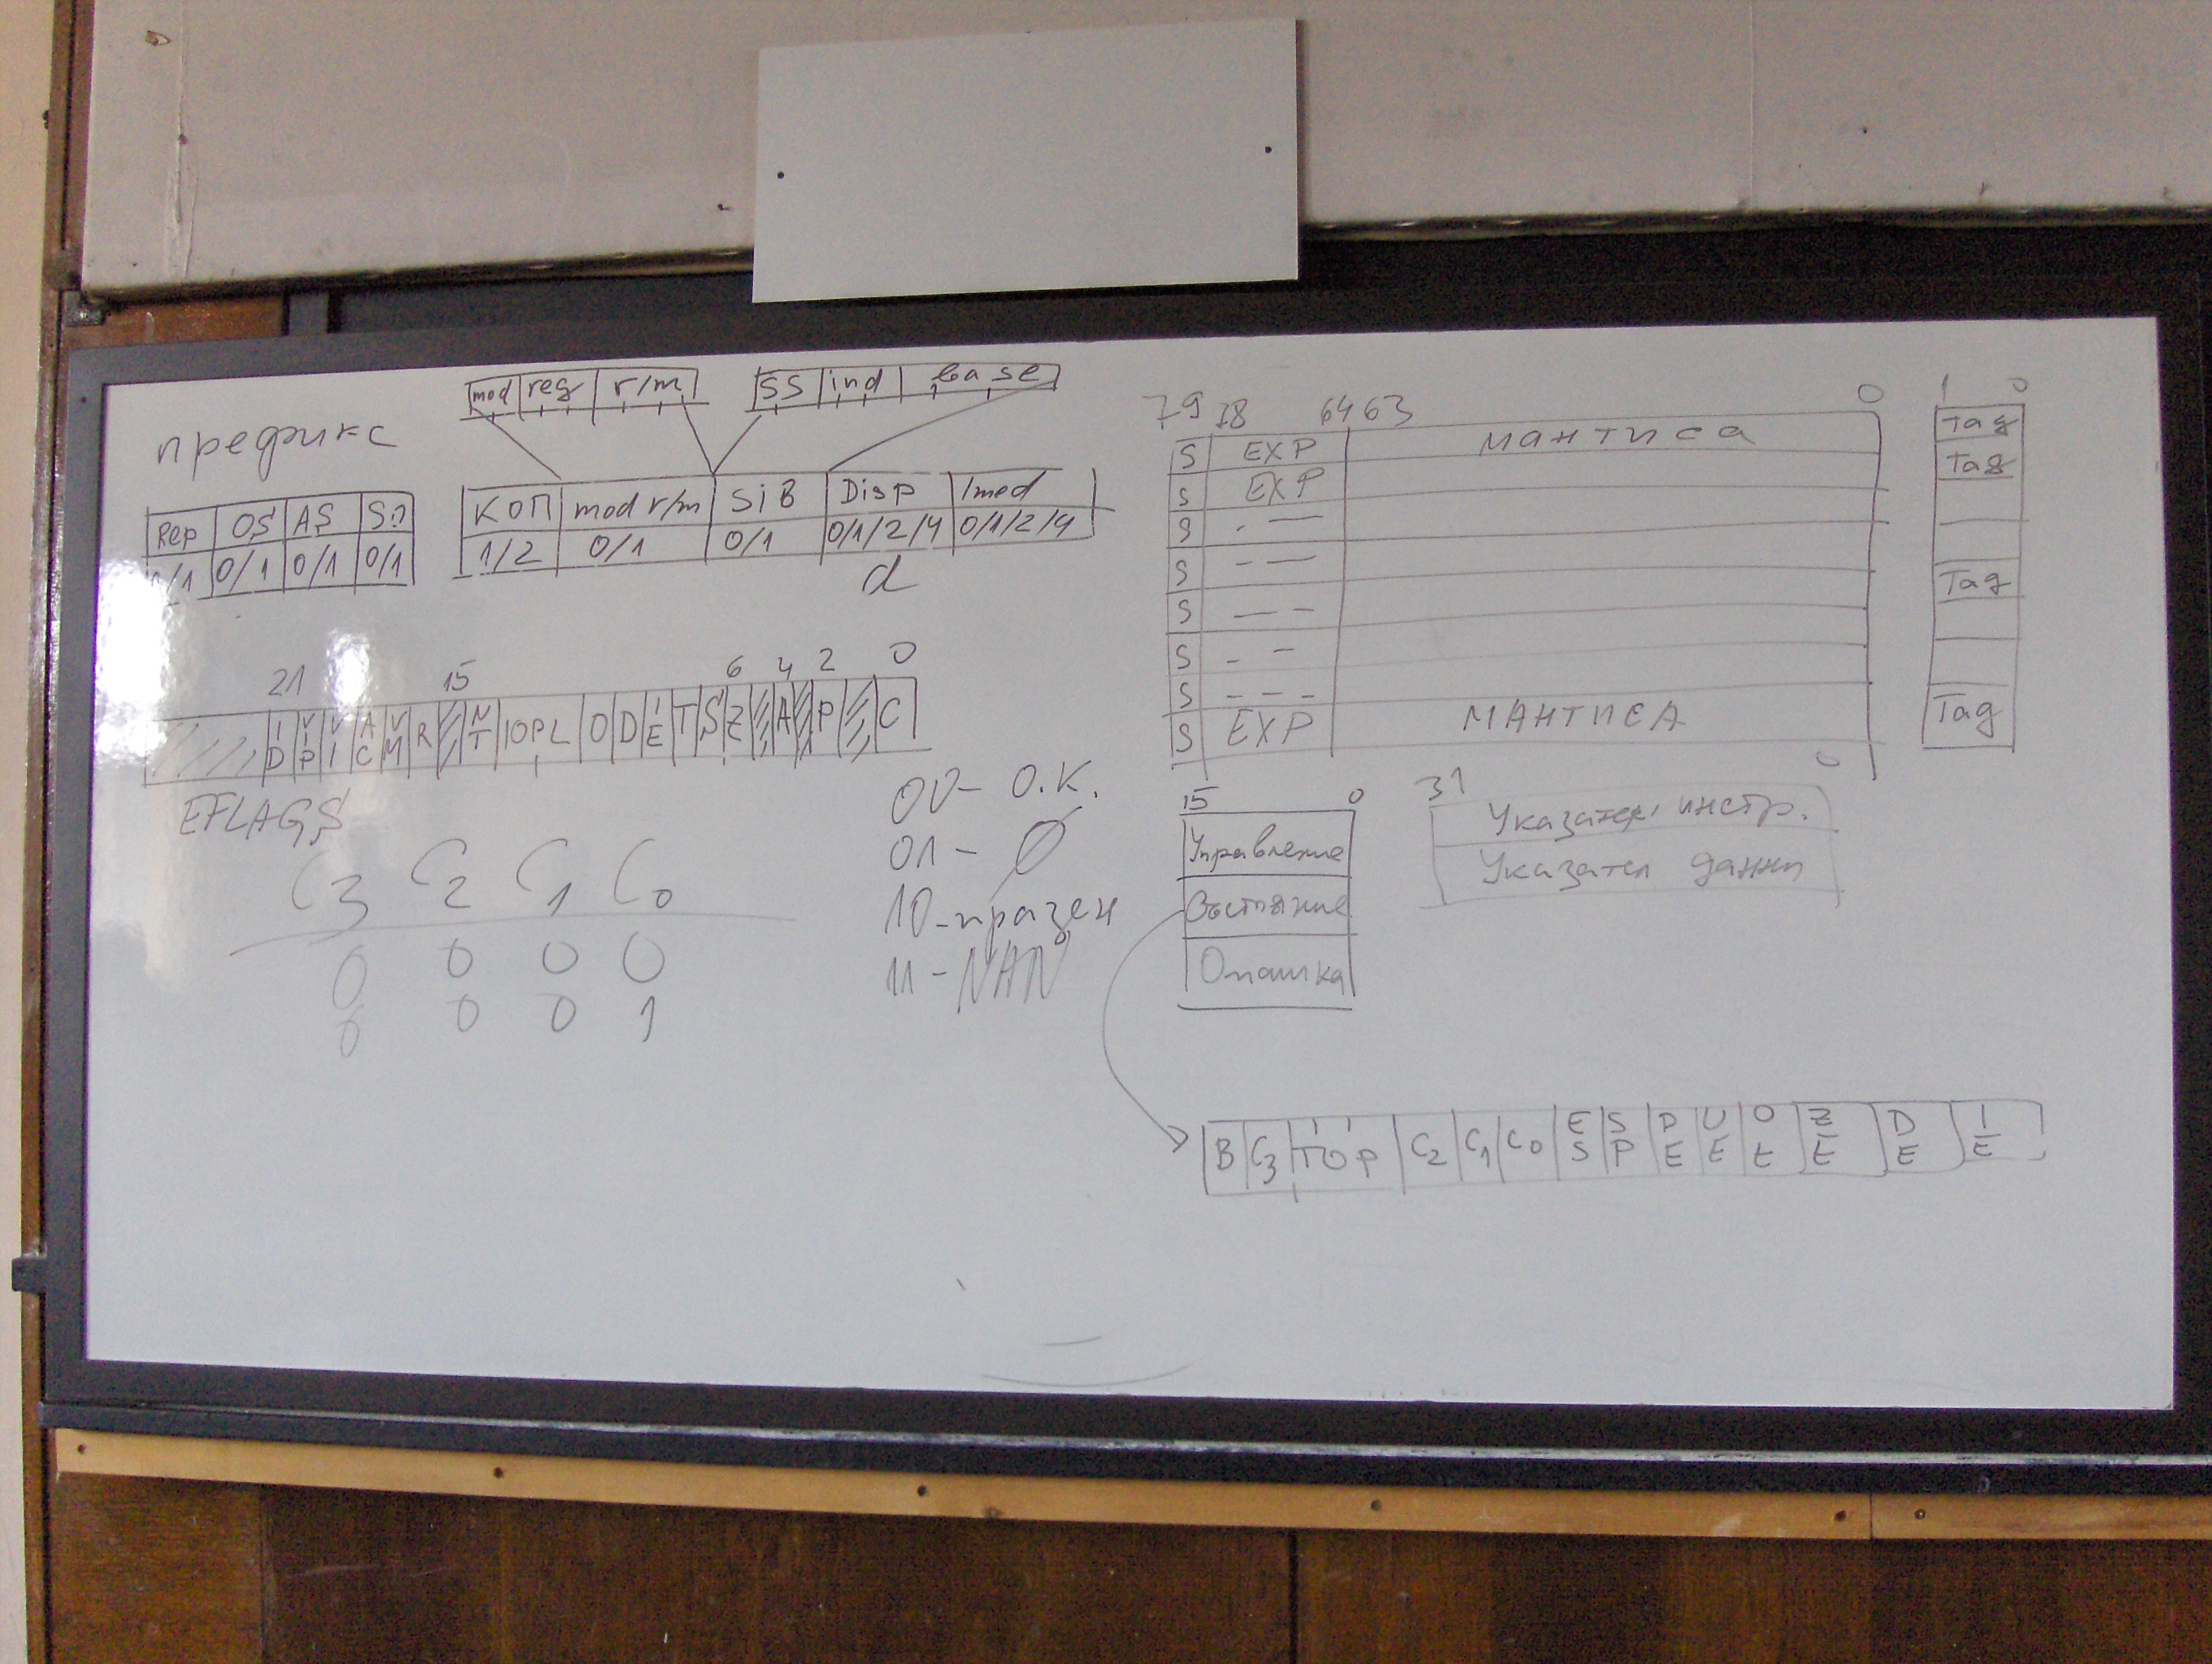 mod reg r/m SS ind base
префикс
Rep OS AS SO
0/1 0/1 0/1 0/1
КОП mod r/m SiB Disp Imed
1/2 0/1 0/1 0/1/2/4 0/1/2/4
d
21 15 6 4 2 0
ID VIP VI AC VM R NT IOPL O D IE T S Z A P C
EFLAGS
C3 C2 C1 C0
0 0 0 0
0 0 0 1
00 - O.K.
01 - 0
10 - празен
11 - NAN
79 78 64 63 0
S EXP мантиса
S EXP
S - —
S - —
S — -
S - -
S - - -
S EXP МАНТИСА
1 0
Tag
Tag
Tag
Tag
15 0
Управление
Състояние
Опашка
31 0
Указател инстр.
Указател данни
B C3 TOP C2 C1 C0 ES SP PE UE OE ZE DE IE